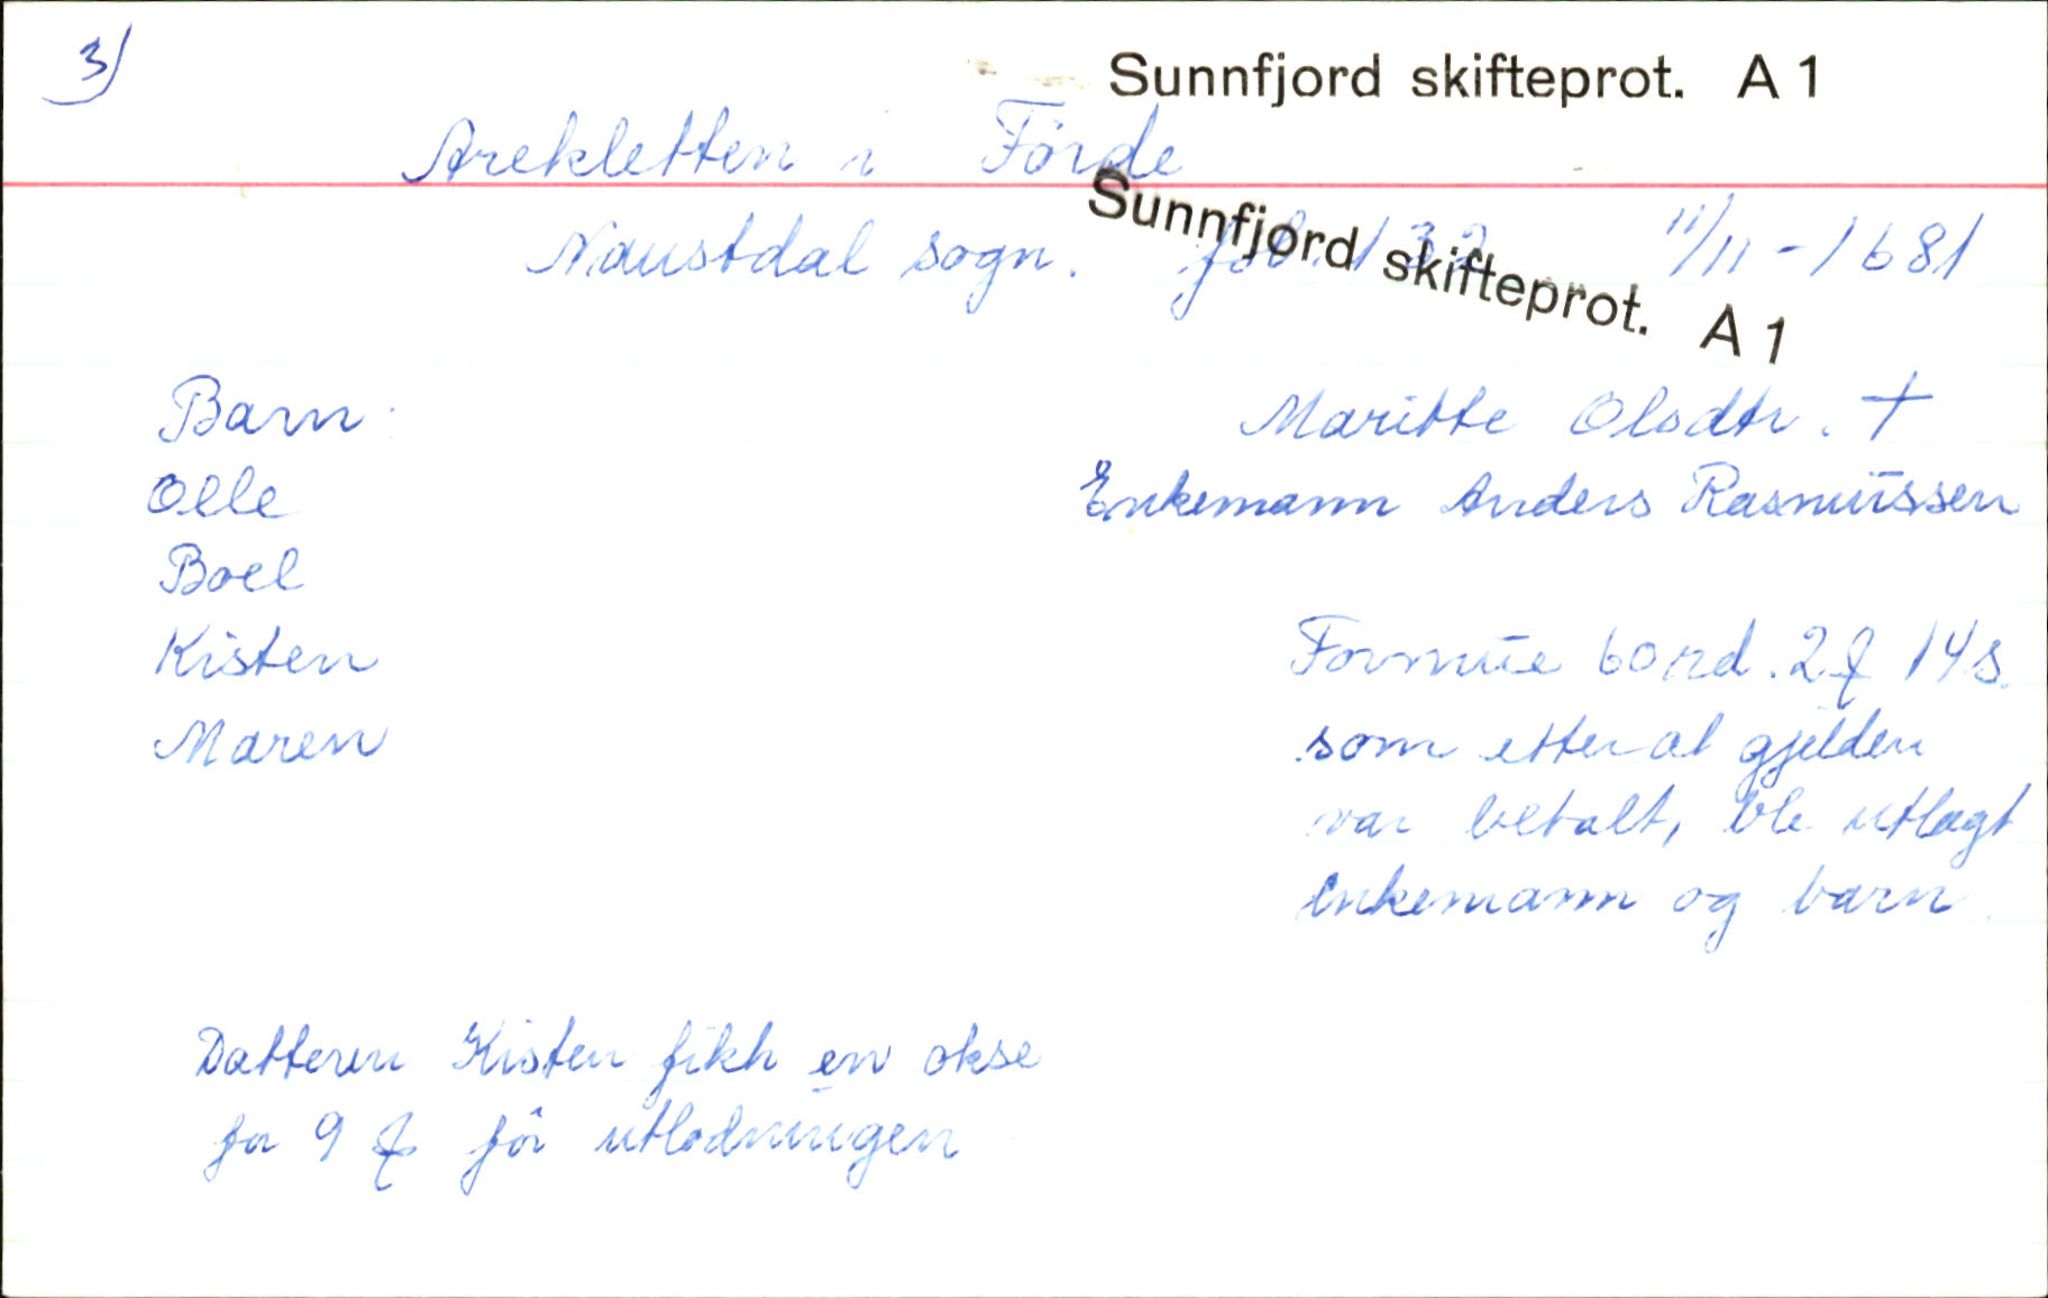 3)
Sunnfjord skifteprot. A 1
Arekletten i Förde
Sunnfjord skifteprot. A 1
Naustdal sogn. fol. 132 11/11 - 1681
Barn:
Maritte Olsdtr. †
Olle
Enkemann Anders Rasmūssen
Boel
Kisten
Formūe 60 rd. 2 ₰ 14 s.
Maren
som etter at gjelden
var betalt, ble utlagt
enkemann og barn
Datteren Kisten fikk en okse
for 9 ₰ för utlodningen